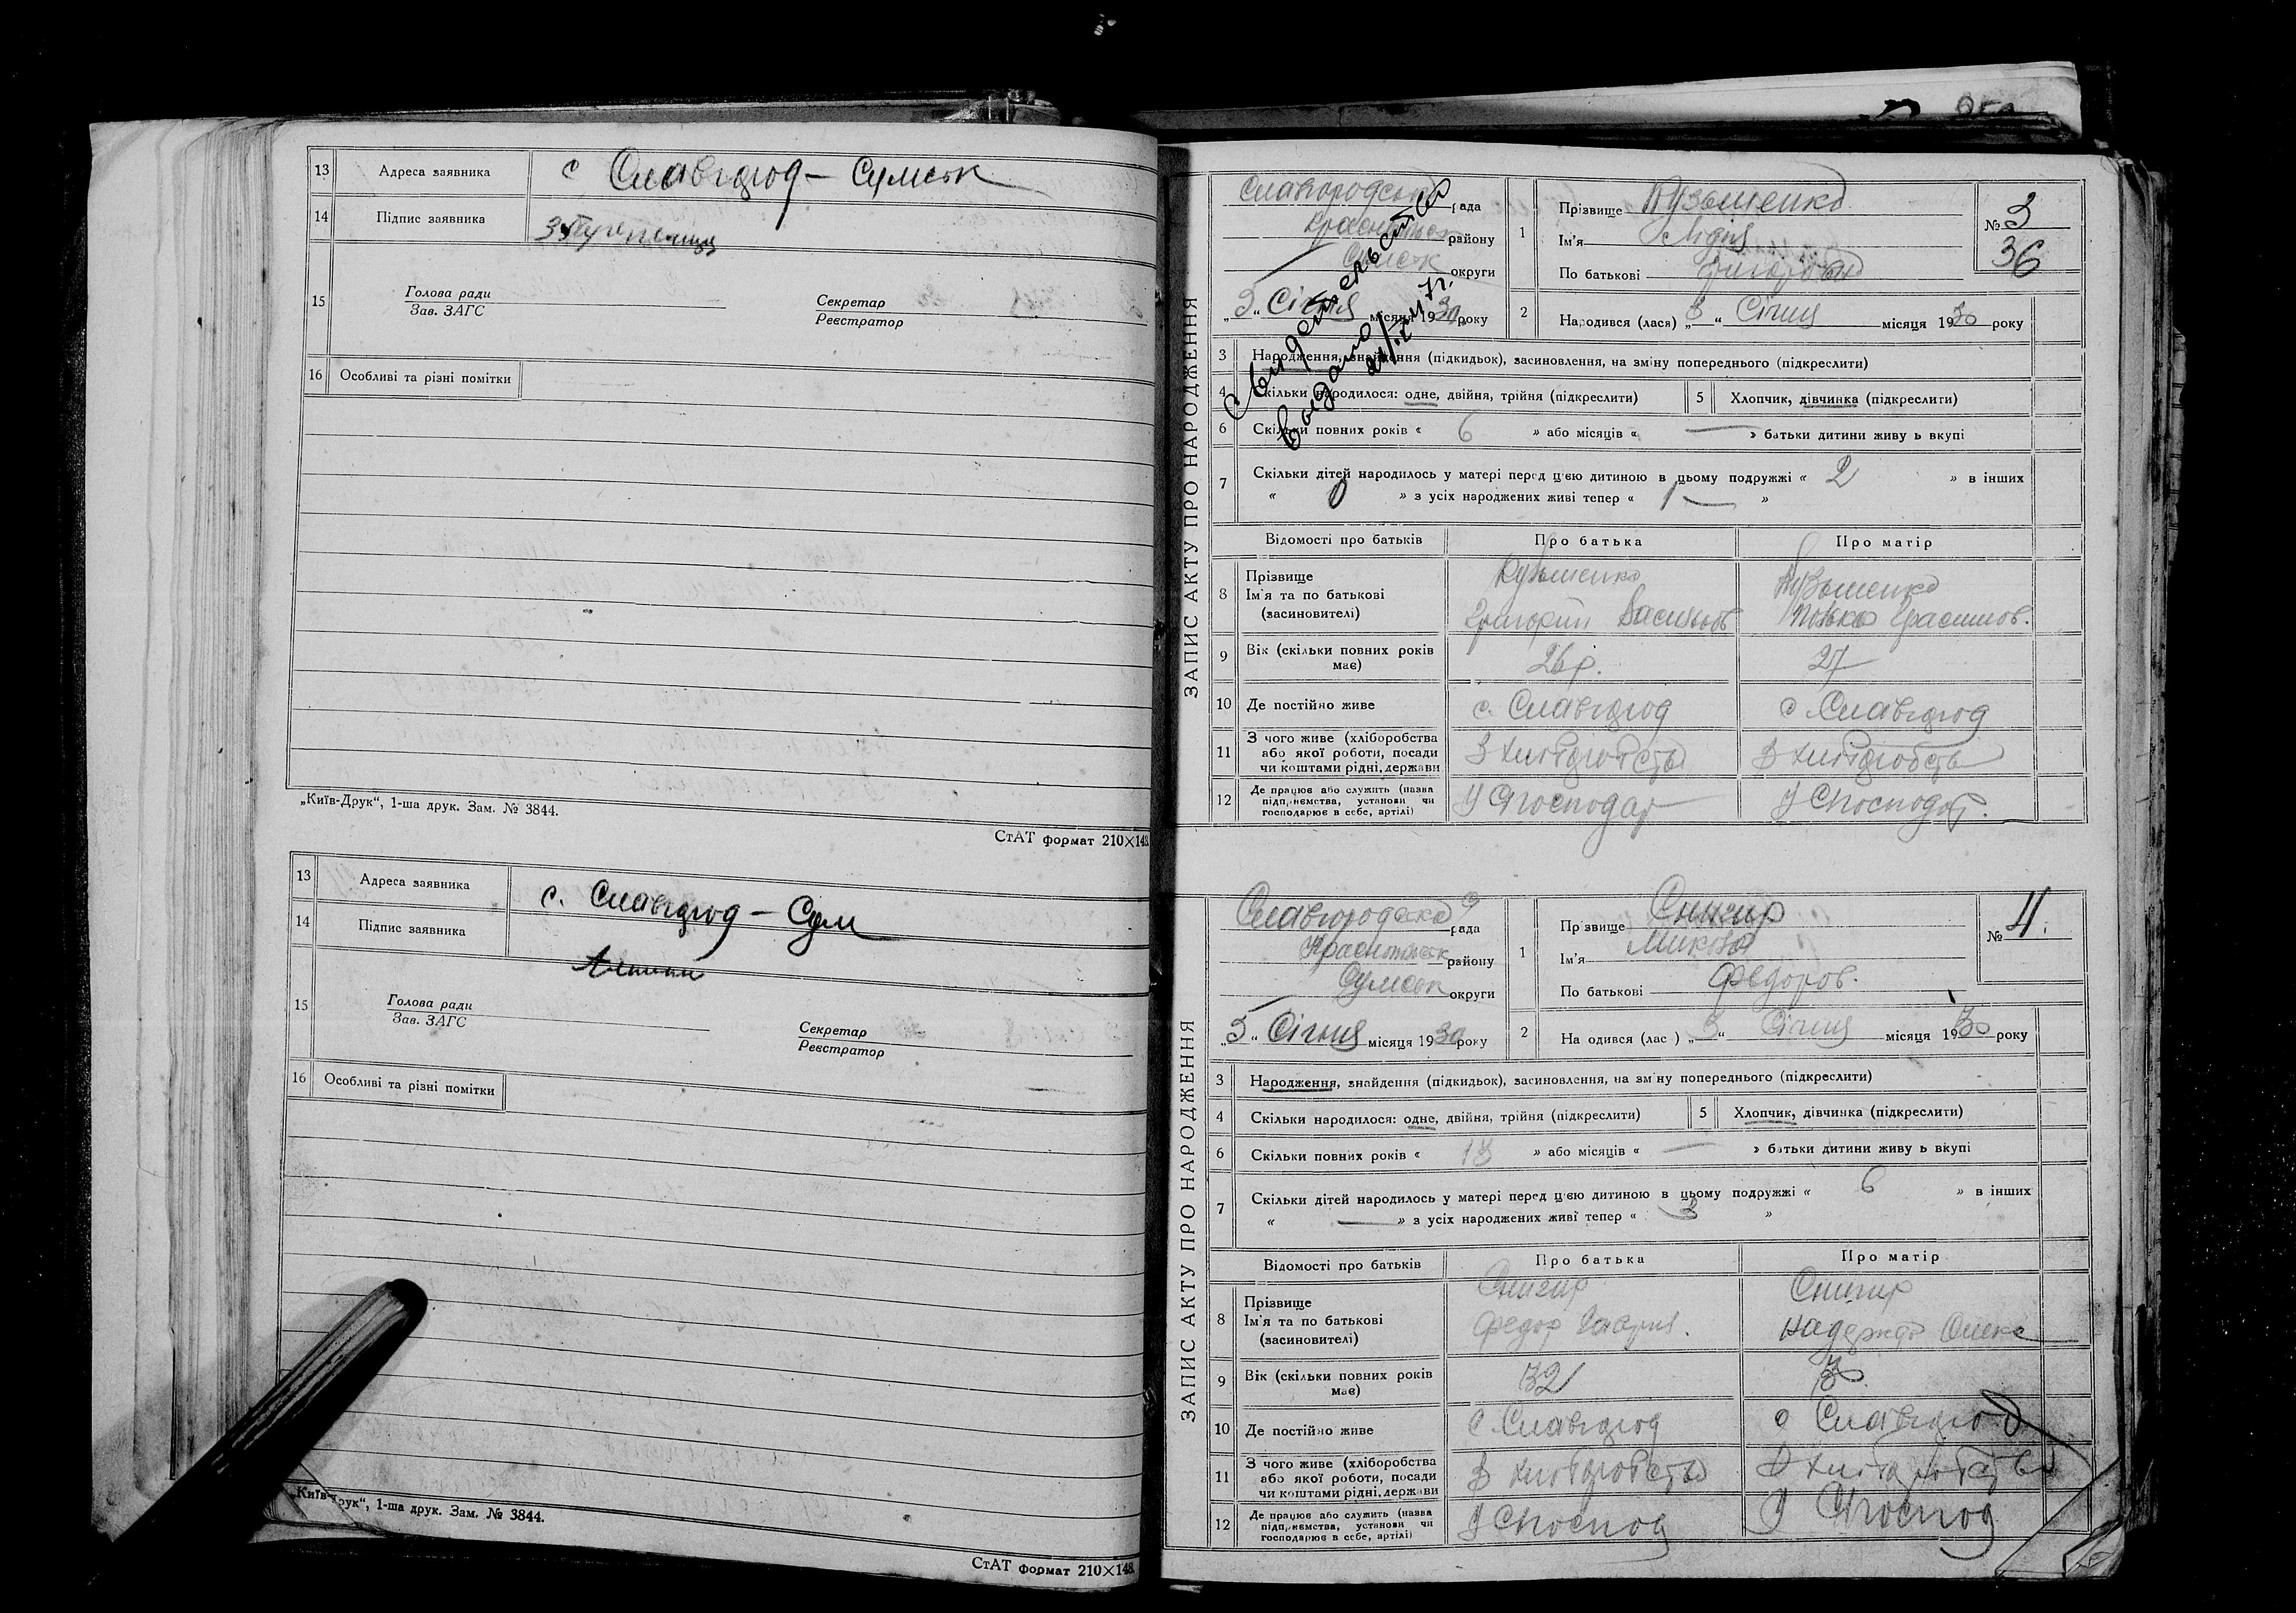 13 Адреса заявника с Славгород – Сумськ
14 Підпис заявника
15 Голова ради
Зав. ЗАГС
Секретар
Реєстратор
16 Особливі та різні помітки
„Київ-Друк“, 1-ша друк. Зам. № 3844.
СтАТ формат 210×148.
13 Адреса заявника с. Славгород – Сум
14 Підпис заявника
15 Голова ради
Зав. ЗАГС
Секретар
Реєстратор
16 Особливі та різні помітки
„Київ-Друк“, 1-ша друк. Зам. № 3844.
СтАТ формат 210×148.
ЗАПИС АКТУ ПРО НАРОДЖЕННЯ
Славгородськ рада
Краснопільськ району
Сумськ округи
„3“ Січня місяця 1930 року
Свидетельство
выдано
1 Прізвище Кузьменко
Ім'я Лідія
По батькові Григоров
№ 3
36
2 Народився (лася) „3“ Січня місяця 1930 року
3 Народження, знайдення (підкидьок), засиновлення, на зміну попереднього (підкреслити)
4 Скільки народилося: одне, двійня, трійня (підкреслити)
5 Хлопчик, дівчинка (підкреслити)
6 Скільки повних років « 6 » або місяців « — » батьки дитини живу ь вкупі
7 Скільки дітей народилось у матері перед цією дитиною в цьому подружжі « 2 » в інших
« 0 » з усіх народжених живі тепер « 1 »
Відомості про батьків Про батька Про матір
8 Прізвище
Ім'я та по батькові
(засиновителі)
Кузьменко
Григорій Васильов
Кузьменко
Герасимов.
9 Вік (скільки повних років має) 26 р. 27
10 Де постійно живе с. Славгород с Славгород
11 З чого живе (хліборобства
або якої роботи, посади
чи коштами рідні, держави
З хліборобства З хліборобства
12 Де працює або служить (назва
підприємства, установи чи
господарює в себе, артілі)
У С/господар У С/господар.
ЗАПИС АКТУ ПРО НАРОДЖЕННЯ
Славгородська рада
Краснопільськ району
Сумськ округи
„5“ Січня місяця 1930 року
1 Прізвище Снигир
Ім'я Микола
По батькові Федоров.
№ 4.
2 На одився (лас ) „3“ Січня місяця 1930 року
3 Народження, знайдення (підкидьок), засиновлення, на зм ну попереднього (підкреслити)
4 Скільки народилося: одне, двійня, трійня (підкреслити)
5 Хлопчик, дівчинка (підкреслити)
6 Скільки повних років « 13 » або місяців « — » батьки дитини живу ь вкупі
7 Скільки дітей народилось у матері перед цією дитиною в цьому подружжі « 6 » в інших
« — » з усіх народжених живі тепер « 3 »
Відомості про батьків Про батька Про матір
8 Прізвище
Ім'я та по батькові
(засиновителі)
Снигир
Федор Гаврил.
Снигир
Надежда Олекс
9 Вік (скільки повних років має) 32 30
10 Де постійно живе с Славгород с Славгород
11 З чого живе (хліборобства
або якої роботи, посади
чи коштами рідні, держави
З хліборобства З хліборобства
12 Де працює або служить (назва
підприємства, установи чи
господарює в себе, артілі)
У С/господ У С/господ